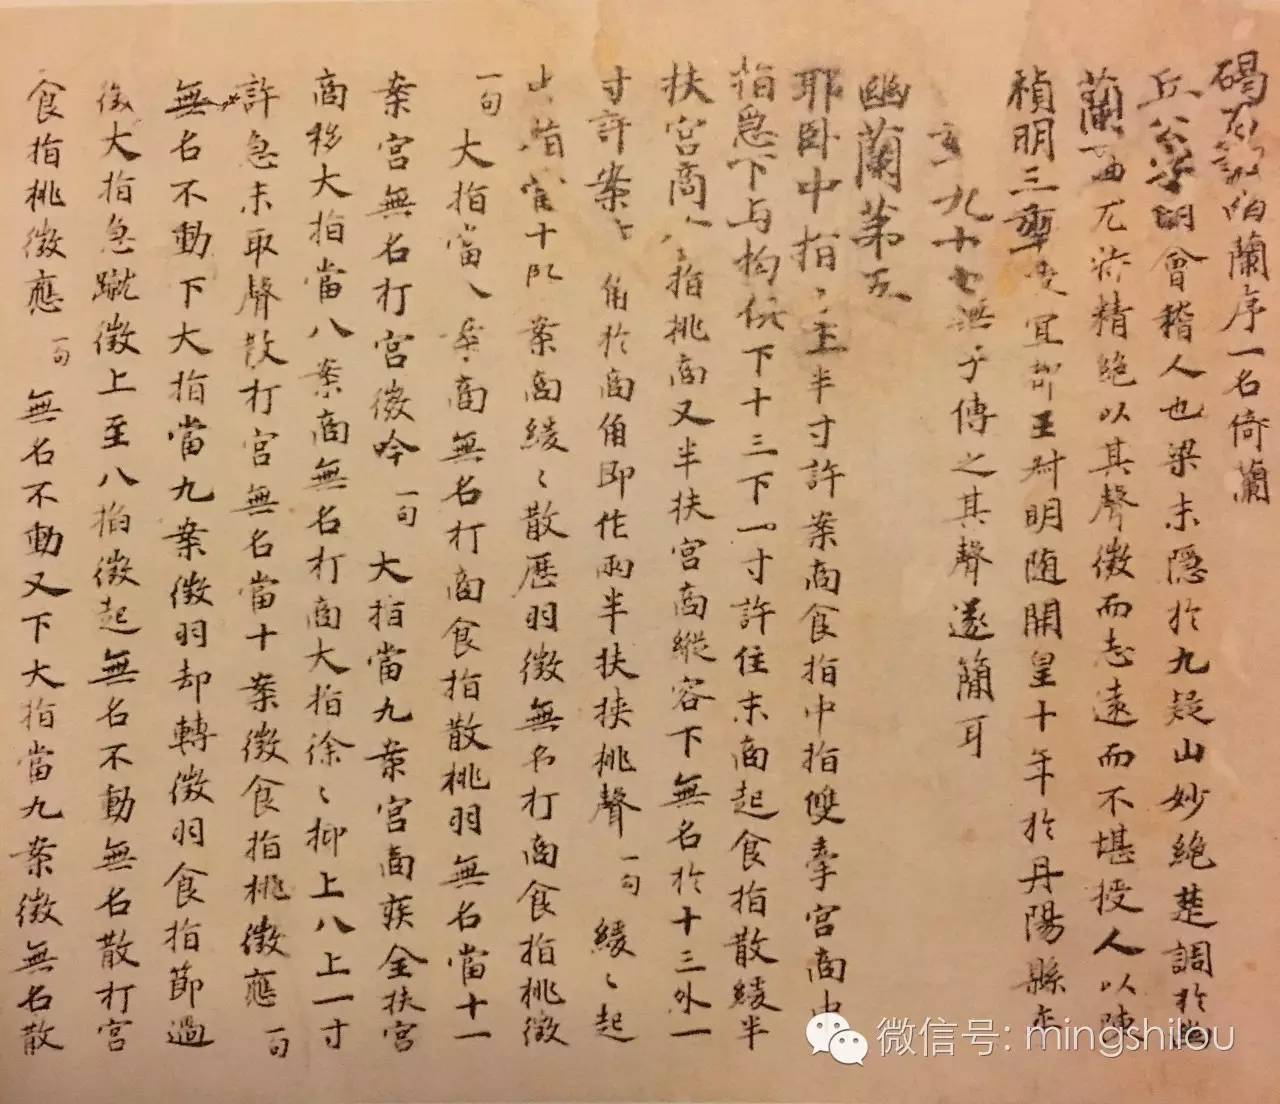 碣石調幽蘭序一名倚蘭
丘公字明會稽人也梁末隱於九疑山妙絶楚調於幽
蘭一曲尤特精絶以其聲微而志遠而不堪授人以陳
禎明三年授宜都王叔明随開皇十年於丹陽縣卒
九十七無子傳之其聲遂簡耳
幽蘭第五
耶卧中指〻半寸許案商食指中指雙牽宮商中
指急下与拘俱下十三下一寸許住末商起食指散緩半
扶宮商食指挑商又半扶宮商縱容下無名於十三外一
寸許案商角於商角即作兩半扶挾挑聲一句緩〻起
指當十案商緩〻散歷羽徵無名打商食指挑徵
一句大指當八案商無名打商食指散挑羽無名當十一
案宮無名打宮徵吟一句大指當九案宮商疾全扶宮
商移大指當八案商無名打商大指徐〻抑上八上一寸
許急末取聲散打宮無名當十案徵食指挑徵應一句
無名不動下大指當九案徵羽却轉徵羽食指節過
徵大指急蹴徵上至八拍徵起無名不動無名散打宮
食指挑徵應一句無名不動又下大指當九案徵無名散
微信号: mingshilou